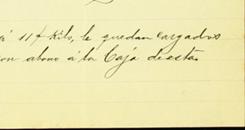 á 11 f Kilo, le quedan cargados
on abono á la Caja de esta